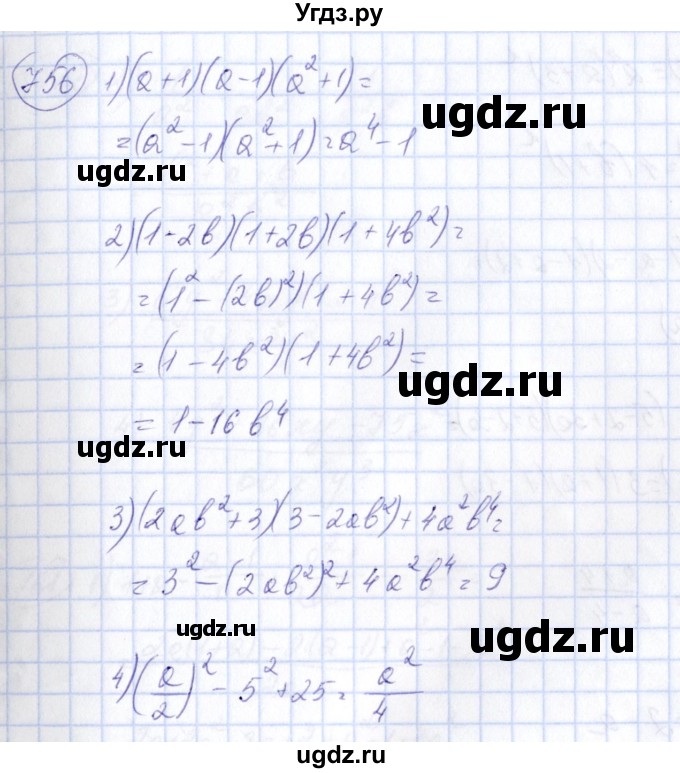 Угдз.ру
756 1) (a+1)(a-1)(a²+1)=
=(a²-1)(a²+1)=a⁴-1
ugdz.ru
ugdz.ru
2) (1-2b)(1+2b)(1+4b²)=
=(1²-(2b)²)(1+4b²)=
=(1-4b²)(1+4b²)=
ugdz.ru
=1-16b⁴
ugdz.ru
3) (2ab²+3)(3-2ab²)+4a²b⁴=
=3²-(2ab²)²+4a²b⁴=9
ugdz.ru
ugdz.ru
4) (a/2)²-5²+25=a²/4
ugdz.ru